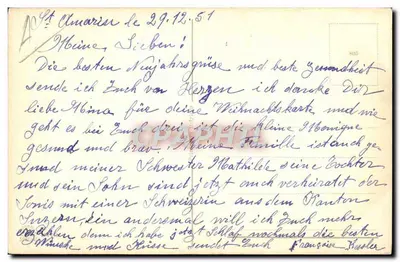 St Amarin le 29.12.51
Meine Lieben!
Die besten Neujahrsgrüse und beste Gesundheit
sende ich Euch von Herzen ich danke Dir
liebe Mina für deine Weihnachtskarte und wie
geht es bei Euch drei, ist die kleine Monique
gesund und brav. Meine Familie ist auch ge
sund meiner Schwester Mathilde seine Tochter
und sein Sohn sind jetzt auch verheiratet der
Tonis mit einer Schweizerin aus dem Kanton
Luzern, ein andersmal will ich Euch mehr
erzählen denn ich habe jetzt Schlaf nochmals die besten
Wünsche und Küsse sendet Euch Françoise